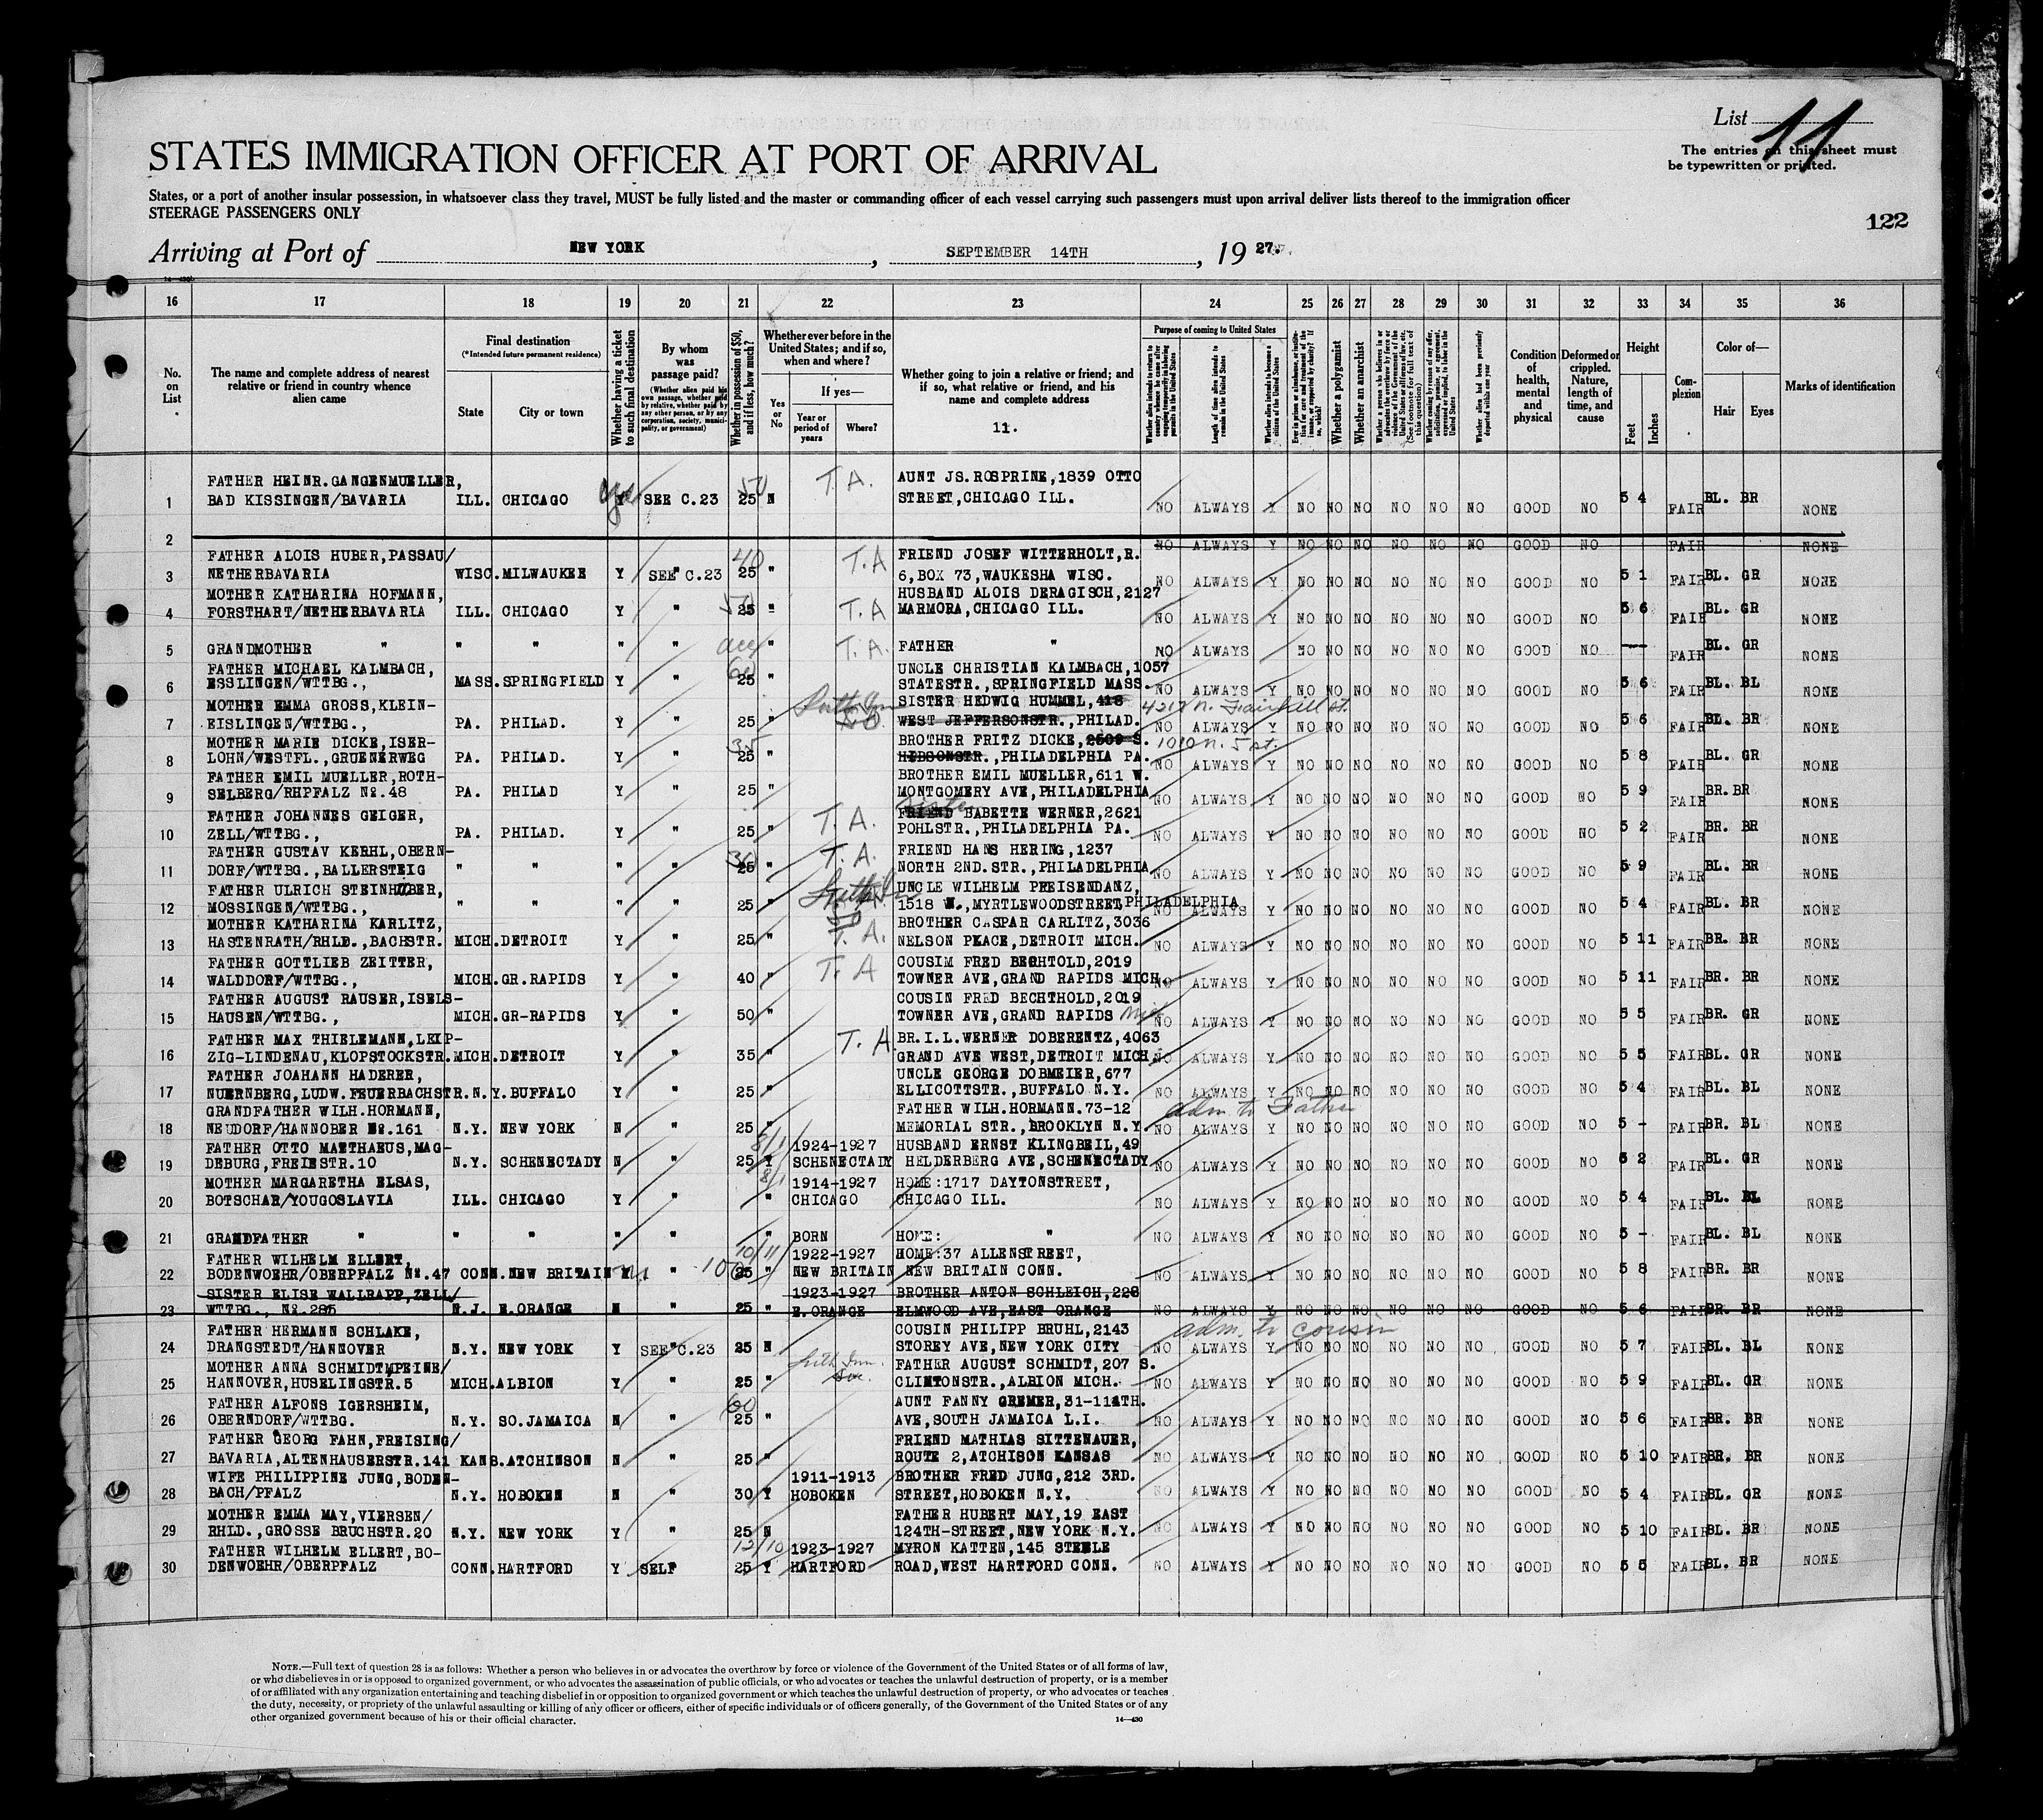 List 11
STATES IMMIGRATION OFFICER AT PORT OF ARRIVAL
The entries on this sheet must
be typewritten or printed.
States, or a port of another insular possession, in whatsoever class they travel, MUST be fully listed and the master or commanding officer of each vessel carrying such passengers must upon arrival deliver lists thereof to the immigration officer
STEERAGE PASSENGERS ONLY
122
Arriving at Port of NEW YORK, SEPTEMBER 14TH, 19 27.
16 17 18 19 20 21 22 23 24 25 26 27 28 29 30 31 32 33 34 35 36
No. on List
The name and complete address of nearest relative or friend in country whence alien came
Final destination
(*Intended future permanent residence)
State
City or town
Whether having a ticket to such final destination
By whom was passage paid?
(Whether alien paid his own passage, whether paid by relative, whether paid by any other person, or by any corporation, society, municipality, or government)
Whether in possession of $50, and if less, how much?
Whether ever before in the United States; and if so, when and where?
Yes or No
If yes—
Year or period of years
Where?
Whether going to join a relative or friend; and if so, what relative or friend, and his name and complete address
11.
Purpose of coming to United States
Length of time alien intends to remain in the United States
Whether alien intends to become a citizen of the United States
Whether a polygamist
Whether an anarchist
Condition of health, mental and physical
Deformed or crippled. Nature, length of time, and cause
Height
Feet
Inches
Complexion
Color of—
Hair
Eyes
Marks of identification
FATHER HEINR.GANGENMUELLER, T.A. AUNT JS.ROSPRINE,1839 OTTO
1 BAD KISSINGEN/BAVARIA ILL. CHICAGO Y yes SEE C.23 25 50 N STREET,CHICAGO ILL. NO ALWAYS Y NO NO NO NO NO NO GOOD NO 5 4 FAIR BL. BR NONE
2 NO ALWAYS Y NO NO NO NO NO NO GOOD NO FAIR NONE
FATHER ALOIS HUBER,PASSAU/ 40 T.A FRIEND JOSEF WITTERHOLT,R.
3 NETHERBAVARIA WISC.MILWAUKEE Y SEE C.23 25 " 6,BOX 73,WAUKESHA WISC. NO ALWAYS Y NO NO NO NO NO NO GOOD NO 5 1 FAIR BL. GR NONE
MOTHER KATHARINA HOFMANN, HUSBAND ALOIS DERAGISCH,2127
4 FORSTHART/NETHERBAVARIA ILL. CHICAGO Y " 25 50 " T.A MARMORA,CHICAGO ILL. NO ALWAYS Y NO NO NO NO NO NO GOOD NO 5 6 FAIR BL. GR NONE
5 GRANDMOTHER " " " " " " T.A. FATHER " NO ALWAYS NO NO NO NO NO NO GOOD NO — FAIR BL. GR NONE
FATHER MICHAEL KALMBACH, 60 UNCLE CHRISTIAN KALMBACH,1057
6 ESSLINGEN/WTTBG., MASS.SPRINGFIELD Y " 25 " STATESTR.,SPRINGFIELD MASS. NO ALWAYS Y NO NO NO NO NO NO GOOD NO 5 6 FAIR BL. BL NONE
MOTHER EMMA GROSS,KLEIN- SISTER HEDWIG HUMMEL,418 4217 N. Fairhill st.
7 EISLINGEN/WTTBG., PA. PHILAD. Y " 25 " WEST JEFFERSONSTR.,PHILAD. NO ALWAYS Y NO NO NO NO NO NO GOOD NO 5 6 FAIR BL. BR NONE
MOTHER MARIE DICKE,ISER- 35 BROTHER FRITZ DICKE,2509 S. 1010 N. 5 st.
8 LOHN/WESTFL.,GRUENERWEG PA. PHILAD. Y " 25 " HOBSONSTR.,PHILADELPHIA PA. NO ALWAYS Y NO NO NO NO NO NO GOOD NO 5 8 FAIR BL. GR NONE
FATHER EMIL MUELLER,ROTH- BROTHER EMIL MUELLER,611 W.
9 SELBERG/RHPFALZ No.48 PA. PHILAD Y " 25 " MONTGOMERY AVE,PHILADELPHIA NO ALWAYS Y NO NO NO NO NO NO GOOD NO 5 9 FAIR BR.BR NONE
FATHER JOHANNES GEIGER, T.A. sister FRIEND BABETTE WERNER,2621
10 ZELL/WTTBG., PA. PHILAD. Y " 25 " POHLSTR.,PHILADELPHIA PA. NO ALWAYS Y NO NO NO NO NO NO GOOD NO 5 2 FAIR BR. BR NONE
FATHER GUSTAV KERHL,OBERN- 30 T.A. FRIEND HANS HERING,1237
11 DORF/WTTBG.,BALLERSTEIG " " " " 25 " NORTH 2ND.STR.,PHILADELPHIA NO ALWAYS Y NO NO NO NO NO NO GOOD NO 5 9 FAIR BL. BR NONE
FATHER ULRICH STEINHUBER, UNCLE WILHELM PREISENDANZ,
12 MOSSINGEN/WTTBG., " " " " 25 " 1518 W.,MYRTLEWOODSTREET,PHILADELPHIA NO ALWAYS Y NO NO NO NO NO NO GOOD NO 5 4 FAIR BL. BR NONE
MOTHER KATHARINA KARLITZ, BROTHER CASPAR CARLITZ,3036
13 HASTENRATH/RHLD.,BACHSTR. MICH.DETROIT Y " 25 " T.A. NELSON PEACE,DETROIT MICH. NO ALWAYS Y NO NO NO NO NO NO GOOD NO 5 11 FAIR BR. BR NONE
FATHER GOTTLIEB ZEITTER, T.A COUSIM FRED BECHTOLD,2019
14 WALDDORF/WTTBG., MICH.GR.RAPIDS Y " 40 " TOWNER AVE,GRAND RAPIDS MICH. NO ALWAYS Y NO NO NO NO NO NO GOOD NO 5 11 FAIR BR. BR NONE
FATHER AUGUST RAUSER,ISELS- COUSIN FRED BECHTHOLD,2019
15 HAUSEN/WTTBG., MICH.GR-RAPIDS Y " 50 " TOWNER AVE,GRAND RAPIDS Mich NO ALWAYS Y NO NO NO NO NO NO GOOD NO 5 5 FAIR BR. GR NONE
FATHER MAX THIELEMANN,LEIP- T.A. BR.I.L.WERNER DOBERENTZ,4063
16 ZIG-LINDENAU,KLOPSTOCKSTR.MICH.DETROIT Y " 35 " GRAND AVE WEST,DETROIT MICH. NO ALWAYS Y NO NO NO NO NO NO GOOD NO 5 5 FAIR BL. GR NONE
FATHER JOAHANN HADERER, UNCLE GEORGE DOBMEIER,677
17 NUERNBERG,LUDW.FEUERBACHSTR.N.Y.BUFFALO Y " 25 " ELLICOTTSTR.,BUFFALO N.Y. NO ALWAYS Y NO NO NO NO NO NO GOOD NO 5 4 FAIR BL. BL NONE
GRANDFATHER WILH.HORMANN, FATHER WILH.HORMANN.73-12 adm. to Father
18 NEUDORF/HANNOBER No.161 N.Y. NEW YORK N " 25 " MEMORIAL STR.,BROOKLYN N.Y. NO ALWAYS Y NO NO NO NO NO NO GOOD NO 5 - FAIR BR. BL NONE
FATHER OTTO MATTHAEUS,MAG- 8/1 1924-1927 HUSBAND ERNST KLINGBEIL,49
19 DEBURG,FREIESTR.10 N.Y. SCHENECTADY N " 25 Y SCHENECTADY HELDERBERG AVE,SCHENECTADY NO ALWAYS Y NO NO NO NO NO NO GOOD NO 5 2 FAIR BL. GR NONE
MOTHER MARGARETHA ELSAS, 8/1 1914-1927 HOME:1717 DAYTONSTREET,
20 BOTSCHAR/YOUGOSLAVIA ILL. CHICAGO Y " " CHICAGO CHICAGO ILL. NO ALWAYS Y NO NO NO NO NO NO GOOD NO 5 4 FAIR BL. BL NONE
21 GRANDFATHER " " " " " " BORN HOME: " NO ALWAYS Y NO NO NO NO NO NO GOOD NO 5 - FAIR BL. BL NONE
FATHER WILHELM ELLERT, 10/11 1922-1927 HOME:37 ALLENSTREET,
22 BODENWOEHR/OBERPFALZ No.47 CONN.NEW BRITAIN " 100 25 " NEW BRITAIN NEW BRITAIN CONN. NO ALWAYS Y NO NO NO NO NO NO GOOD NO 5 8 FAIR BR. BR NONE
SISTER ELISE WALLRAPP,ZELL/ 1923-1927 BROTHER ANTON SCHLEICH,228
23 WTTBG., No.285 N.J. E.ORANGE N " 25 " E.ORANGE ELMWOOD AVE,EAST ORANGE NO ALWAYS Y NO NO NO NO NO NO GOOD NO 5 6 FAIR BR. BR NONE
FATHER HERMANN SCHLAKE, COUSIN PHILIPP BRUHL,2143 adm. to cousin
24 DRANGSTEDT/HANNOVER N.Y. NEW YORK Y SEE C.23 25 N STOREY AVE,NEW YORK CITY NO ALWAYS Y NO NO NO NO NO NO GOOD NO 5 7 FAIR BL. BL NONE
MOTHER ANNA SCHMIDT,PEINE/ FATHER AUGUST SCHMIDT,207 S.
25 HANNOVER,HUSELINGSTR.5 MICH.ALBION Y " 25 " CLINTONSTR.,ALBION MICH. NO ALWAYS Y NO NO NO NO NO NO GOOD NO 5 9 FAIR BL. GR NONE
FATHER ALFONS IGERSHEIM, 60 AUNT FANNY GREMER,31-114TH.
26 OBERNDORF/WTTBG. N.Y. SO.JAMAICA N " 25 " AVE,SOUTH JAMAICA L.I. NO ALWAYS Y NO NO NO NO NO NO GOOD NO 5 6 FAIR BR. BR NONE
FATHER GEORG FAHN,FREISING/ FRIEND MATHIAS SITTENAUER,
27 BAVARIA,ALTENHAUSERSTR.141 KANS.ATCHINSON N " 25 " ROUTE 2,ATCHISON KANSAS NO ALWAYS Y NO NO NO NO NO NO GOOD NO 5 10 FAIR BR. BR NONE
WIFE PHILIPPINE JUNG,BODEN- 1911-1913 BROTHER FRED JUNG,212 3RD.
28 BACH/PFALZ N.Y. HOBOKEN N " 30 Y HOBOKEN STREET,HOBOKEN N.Y. NO ALWAYS Y NO NO NO NO NO NO GOOD NO 5 4 FAIR BL. GR NONE
MOTHER EMMA MAY,VIERSEN/ FATHER HUBERT MAY,19 EAST
29 RHLD.,GROSSE BRUCHSTR.20 N.Y. NEW YORK Y " 25 N 124TH-STREET,NEW YORK N.Y. NO ALWAYS Y NO NO NO NO NO NO GOOD NO 5 10 FAIR BL. BR NONE
FATHER WILHELM ELLERT,BO- 12/10 1923-1927 MYRON KATTEN,145 STEELE
30 DENWOEHR/OBERPFALZ CONN.HARTFORD Y SELF 25 Y HARTFORD ROAD,WEST HARTFORD CONN. NO ALWAYS Y NO NO NO NO NO NO GOOD NO 5 5 FAIR BL. BR NONE
NOTE.—Full text of question 28 is as follows: Whether a person who believes in or advocates the overthrow by force or violence of the Government of the United States or of all forms of law,
or who disbelieves in or is opposed to organized government, or who advocates the assassination of public officials, or who advocates or teaches the unlawful destruction of property, or is a member
of or affiliated with any organization entertaining and teaching disbelief in or opposition to organized government or which teaches the unlawful destruction of property, or who advocates or teaches
the duty, necessity, or propriety of the unlawful assaulting or killing of any officer or officers, either of specific individuals or of officers generally, of the Government of the United States or of any
other organized government because of his or their official character.
14—430